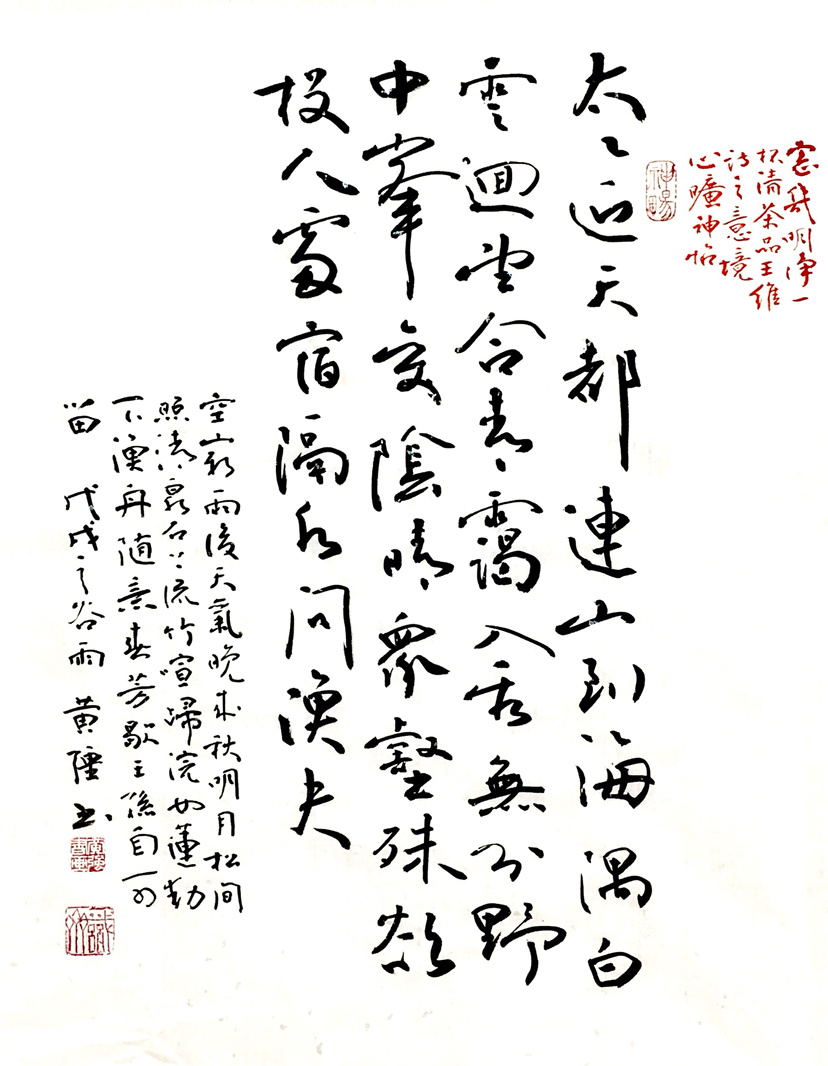 窓幾明净一
杯清茶品王维
诗之意境
心曠神怡
太乙近天都連山到海隅白
雲迴望合青靄入看無分野
中峯变陰晴衆壑殊欲
投人處宿隔水问漁夫
空山新雨後天氣晚来秋明月松间
照清泉石上流竹喧歸浣女蓮動
下漁舟随意春芳歇王孫自可
留 戊戌之谷雨 黄强书